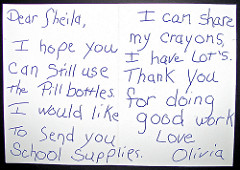 Dear Sheila,
I hope you
can still use
the Pill bottles.
I would like
To send you
School Supplies.
I can share
my crayons,
I have Lot's.
Thank you
for doing
good work
Love
Olivia